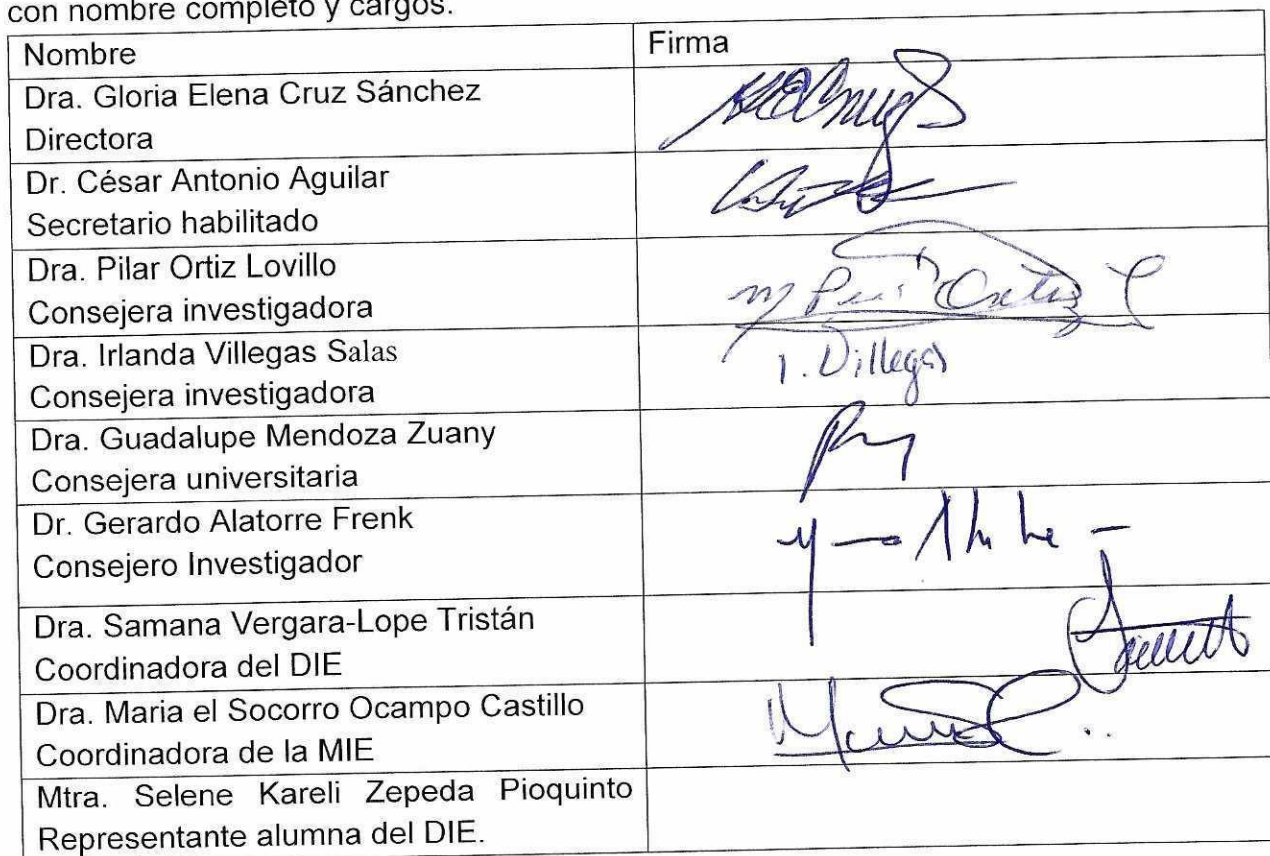 con nombre completo y cargos.
Nombre
Firma
Dra. Gloria Elena Cruz Sánchez
Directora
Dr. César Antonio Aguilar
Secretario habilitado
Dra. Pilar Ortiz Lovillo
Consejera investigadora
Ortiz L
Dra. Irlanda Villegas Salas
Consejera investigadora
I. Villegas
Dra. Guadalupe Mendoza Zuany
Consejera universitaria
Dr. Gerardo Alatorre Frenk
Consejero Investigador
Dra. Samana Vergara-Lope Tristán
Coordinadora del DIE
Dra. Maria el Socorro Ocampo Castillo
Coordinadora de la MIE
Mtra. Selene Kareli Zepeda Pioquinto
Representante alumna del DIE.